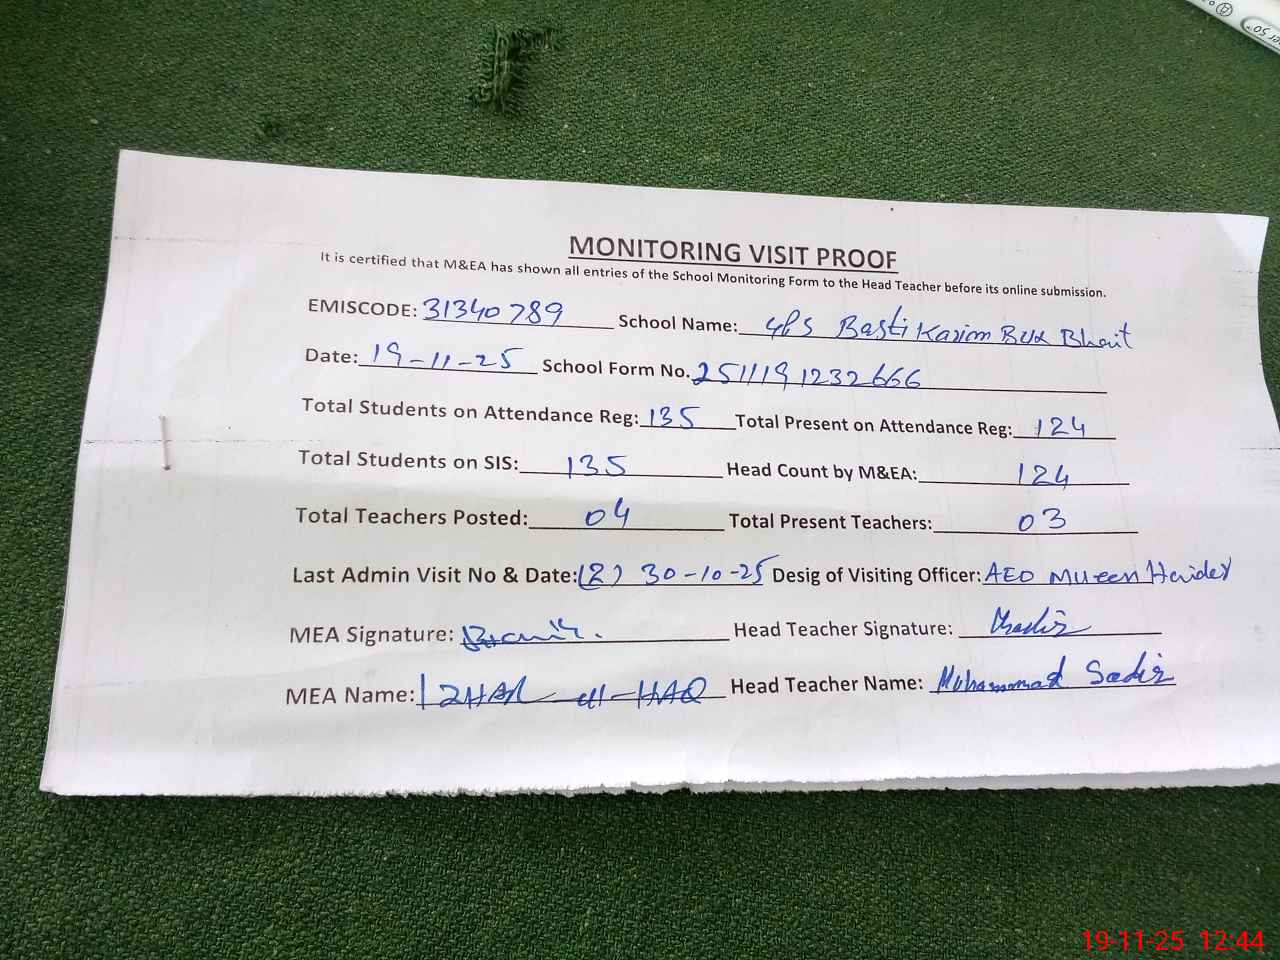 MONITORING VISIT PROOF
It is certified that M&EA has shown all entries of the School Monitoring Form to the Head Teacher before its online submission.
EMISCODE: 31340789 School Name: GPS Basti Karim Bux Bhait
Date: 19-11-25 School Form No. 251119 1232666
Total Students on Attendance Reg: 135 Total Present on Attendance Reg: 124
Total Students on SIS: 135 Head Count by M&EA: 124
Total Teachers Posted: 04 Total Present Teachers: 03
Last Admin Visit No & Date: (2) 30-10-25 Desig of Visiting Officer: AEO Mueen Haider
MEA Signature: Head Teacher Signature:
MEA Name: IZHAR-ul-HAQ Head Teacher Name: Muhammad Sadiq
19-11-25 12:44